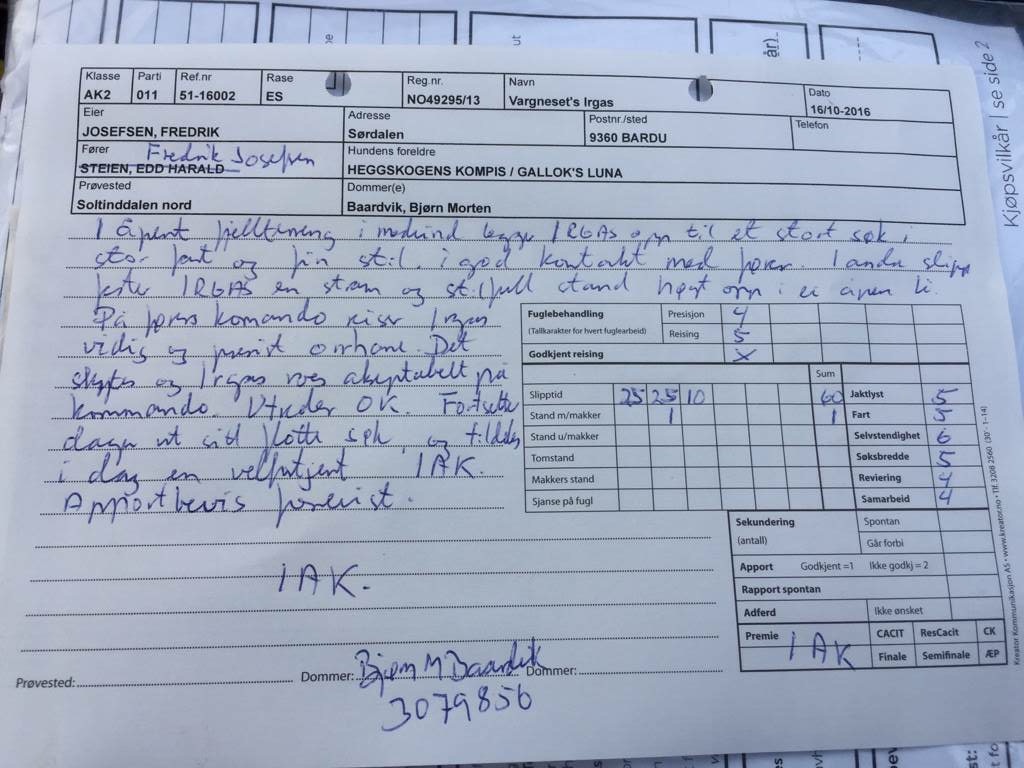 Kjøpsvilkår | se side 2
Klasse Parti Ref.nr Rase Reg.nr. Navn Dato
AK2 011 51-16002 ES NO49295/13 Vargneset's Irgas 16/10-2016
Eier Adresse Postnr./sted Telefon
JOSEFSEN, FREDRIK Sørdalen 9360 BARDU
Fører Fredrik Josefsen Hundens foreldre
STEIEN, EDD HARALD HEGGSKOGENS KOMPIS / GALLOK'S LUNA
Prøvested Dommer(e)
Soltinddalen nord Baardvik, Bjørn Morten
I åpent fjellterreng i medvind legger IRGAS opp til et stort søk i
stor fart og fin stil, i god kontakt med fører. I andre slipp
fester IRGAS en stram og stilfull stand høyt opp i ei åpen li.
På førers komando reiser Irgas
vidig og presist orrhane. Det
skytes og Irgas roes akseptabelt på
kommando. Utreder OK. Fortsetter
dagen ut sitt flotte søk, og tildeles
i dag en velfortjent 1AK.
Apportbevis forevist.
1AK.
Fuglebehandling Presisjon 4
(Tallkarakter for hvert fuglearbeid) Reising 5
Godkjent reising x
Sum
Slipptid 25 25 10 60 Jaktlyst 5
Stand m/makker 1 1 Fart 5
Stand u/makker Selvstendighet 6
Tomstand Søksbredde 5
Makkers stand Reviering 4
Sjanse på fugl Samarbeid 4
Sekundering Spontan
(antall) Går forbi
Apport Godkjent =1 Ikke godkj = 2
Rapport spontan
Adferd Ikke ønsket
Premie 1AK CACIT ResCacit CK
Finale Semifinale ÆP
Prøvested: Dommer: Bjørn M Baardvik Dommer:
3079856
Kreator Kommunikasjon AS • www.kreator.no • Tlf. 3208 2560 (30' - 1-14)